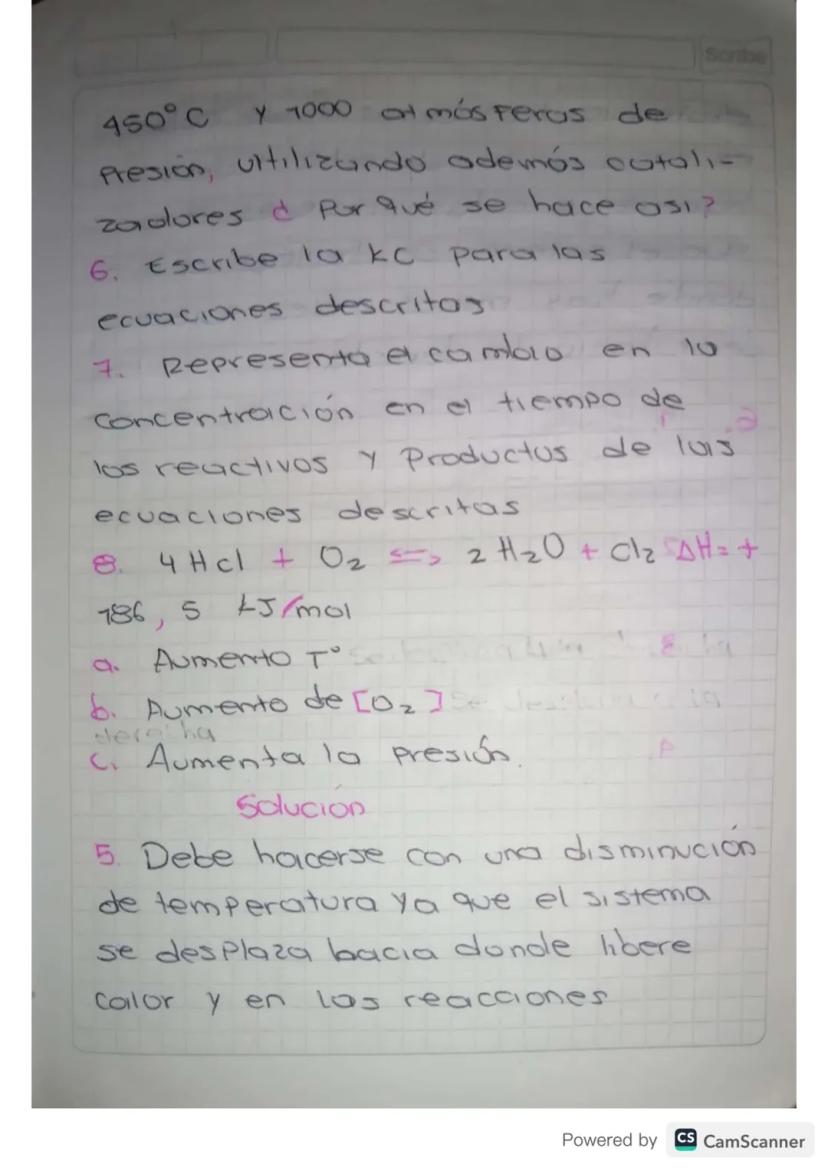 Scribe
450°C y 1000 atmósferas de
Presión, ultilizando además catali-
zadores ¿ Por qué se hace así?
6. Escribe la KC para las
ecuaciones descritas
7. Representa el cambio en la
concentración en el tiempo de
los reactivos y Productos de las
ecuaciones descritas
8. 4 HCl + O₂ ⇌ 2 H₂O + Cl₂ ΔH= +
186, 5 KJ/mol
a. Aumento T°
b. Aumento de [O₂]
derecha
c. Aumenta la presión.
Solución
5. Debe hacerse con una disminución
de temperatura ya que el sistema
se desplaza hacia donde libere
calor y en las reacciones
Powered by CS CamScanner